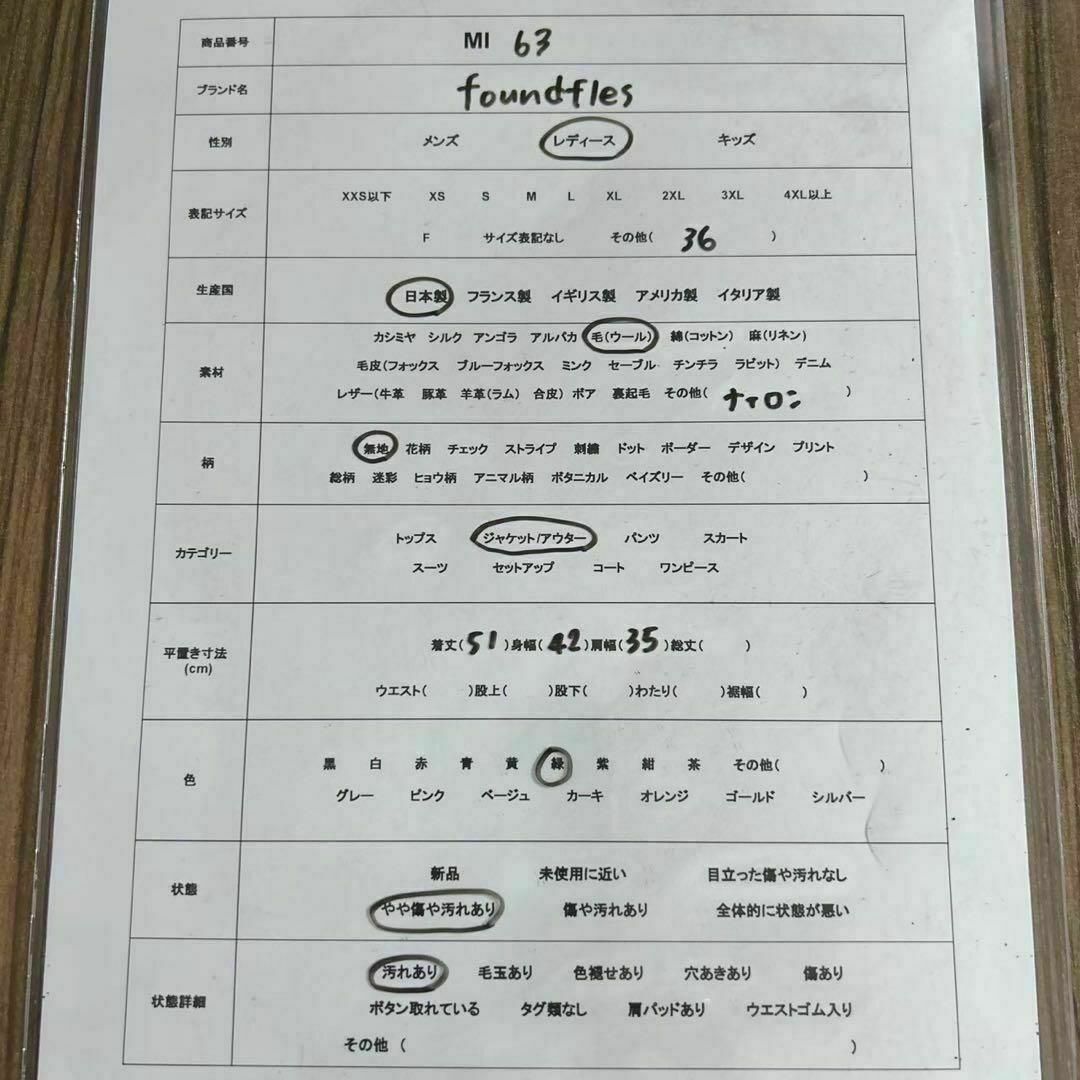 商品番号 MI 63
ブランド名 foundfles
性別 メンズ レディース キッズ
表記サイズ XXS以下 XS S M L XL 2XL 3XL 4XL以上
F サイズ表記なし その他( 36 )
生産国 日本製 フランス製 イギリス製 アメリカ製 イタリア製
素材 カシミヤ シルク アンゴラ アルパカ 毛(ウール) 綿(コットン) 麻(リネン)
毛皮(フォックス ブルーフォックス ミンク セーブル チンチラ ラビット) デニム
レザー(牛革 豚革 羊革(ラム) 合皮) ボア 裏起毛 その他( ナイロン )
柄 無地 花柄 チェック ストライプ 刺繍 ドット ボーダー デザイン プリント
総柄 迷彩 ヒョウ柄 アニマル柄 ボタニカル ペイズリー その他( )
カテゴリー トップス ジャケット/アウター パンツ スカート
スーツ セットアップ コート ワンピース
平置き寸法 (cm) 着丈( 51 )身幅( 42 )肩幅( 35 )総丈( )
ウエスト( )股上( )股下( )わたり( )裾幅( )
色 黒 白 赤 青 黄 緑 紫 紺 茶 その他( )
グレー ピンク ベージュ カーキ オレンジ ゴールド シルバー
状態 新品 未使用に近い 目立った傷や汚れなし
やや傷や汚れあり 傷や汚れあり 全体的に状態が悪い
状態詳細 汚れあり 毛玉あり 色褪せあり 穴あきあり 傷あり
ボタン取れている タグ類なし 肩パッドあり ウエストゴム入り
その他 ( )